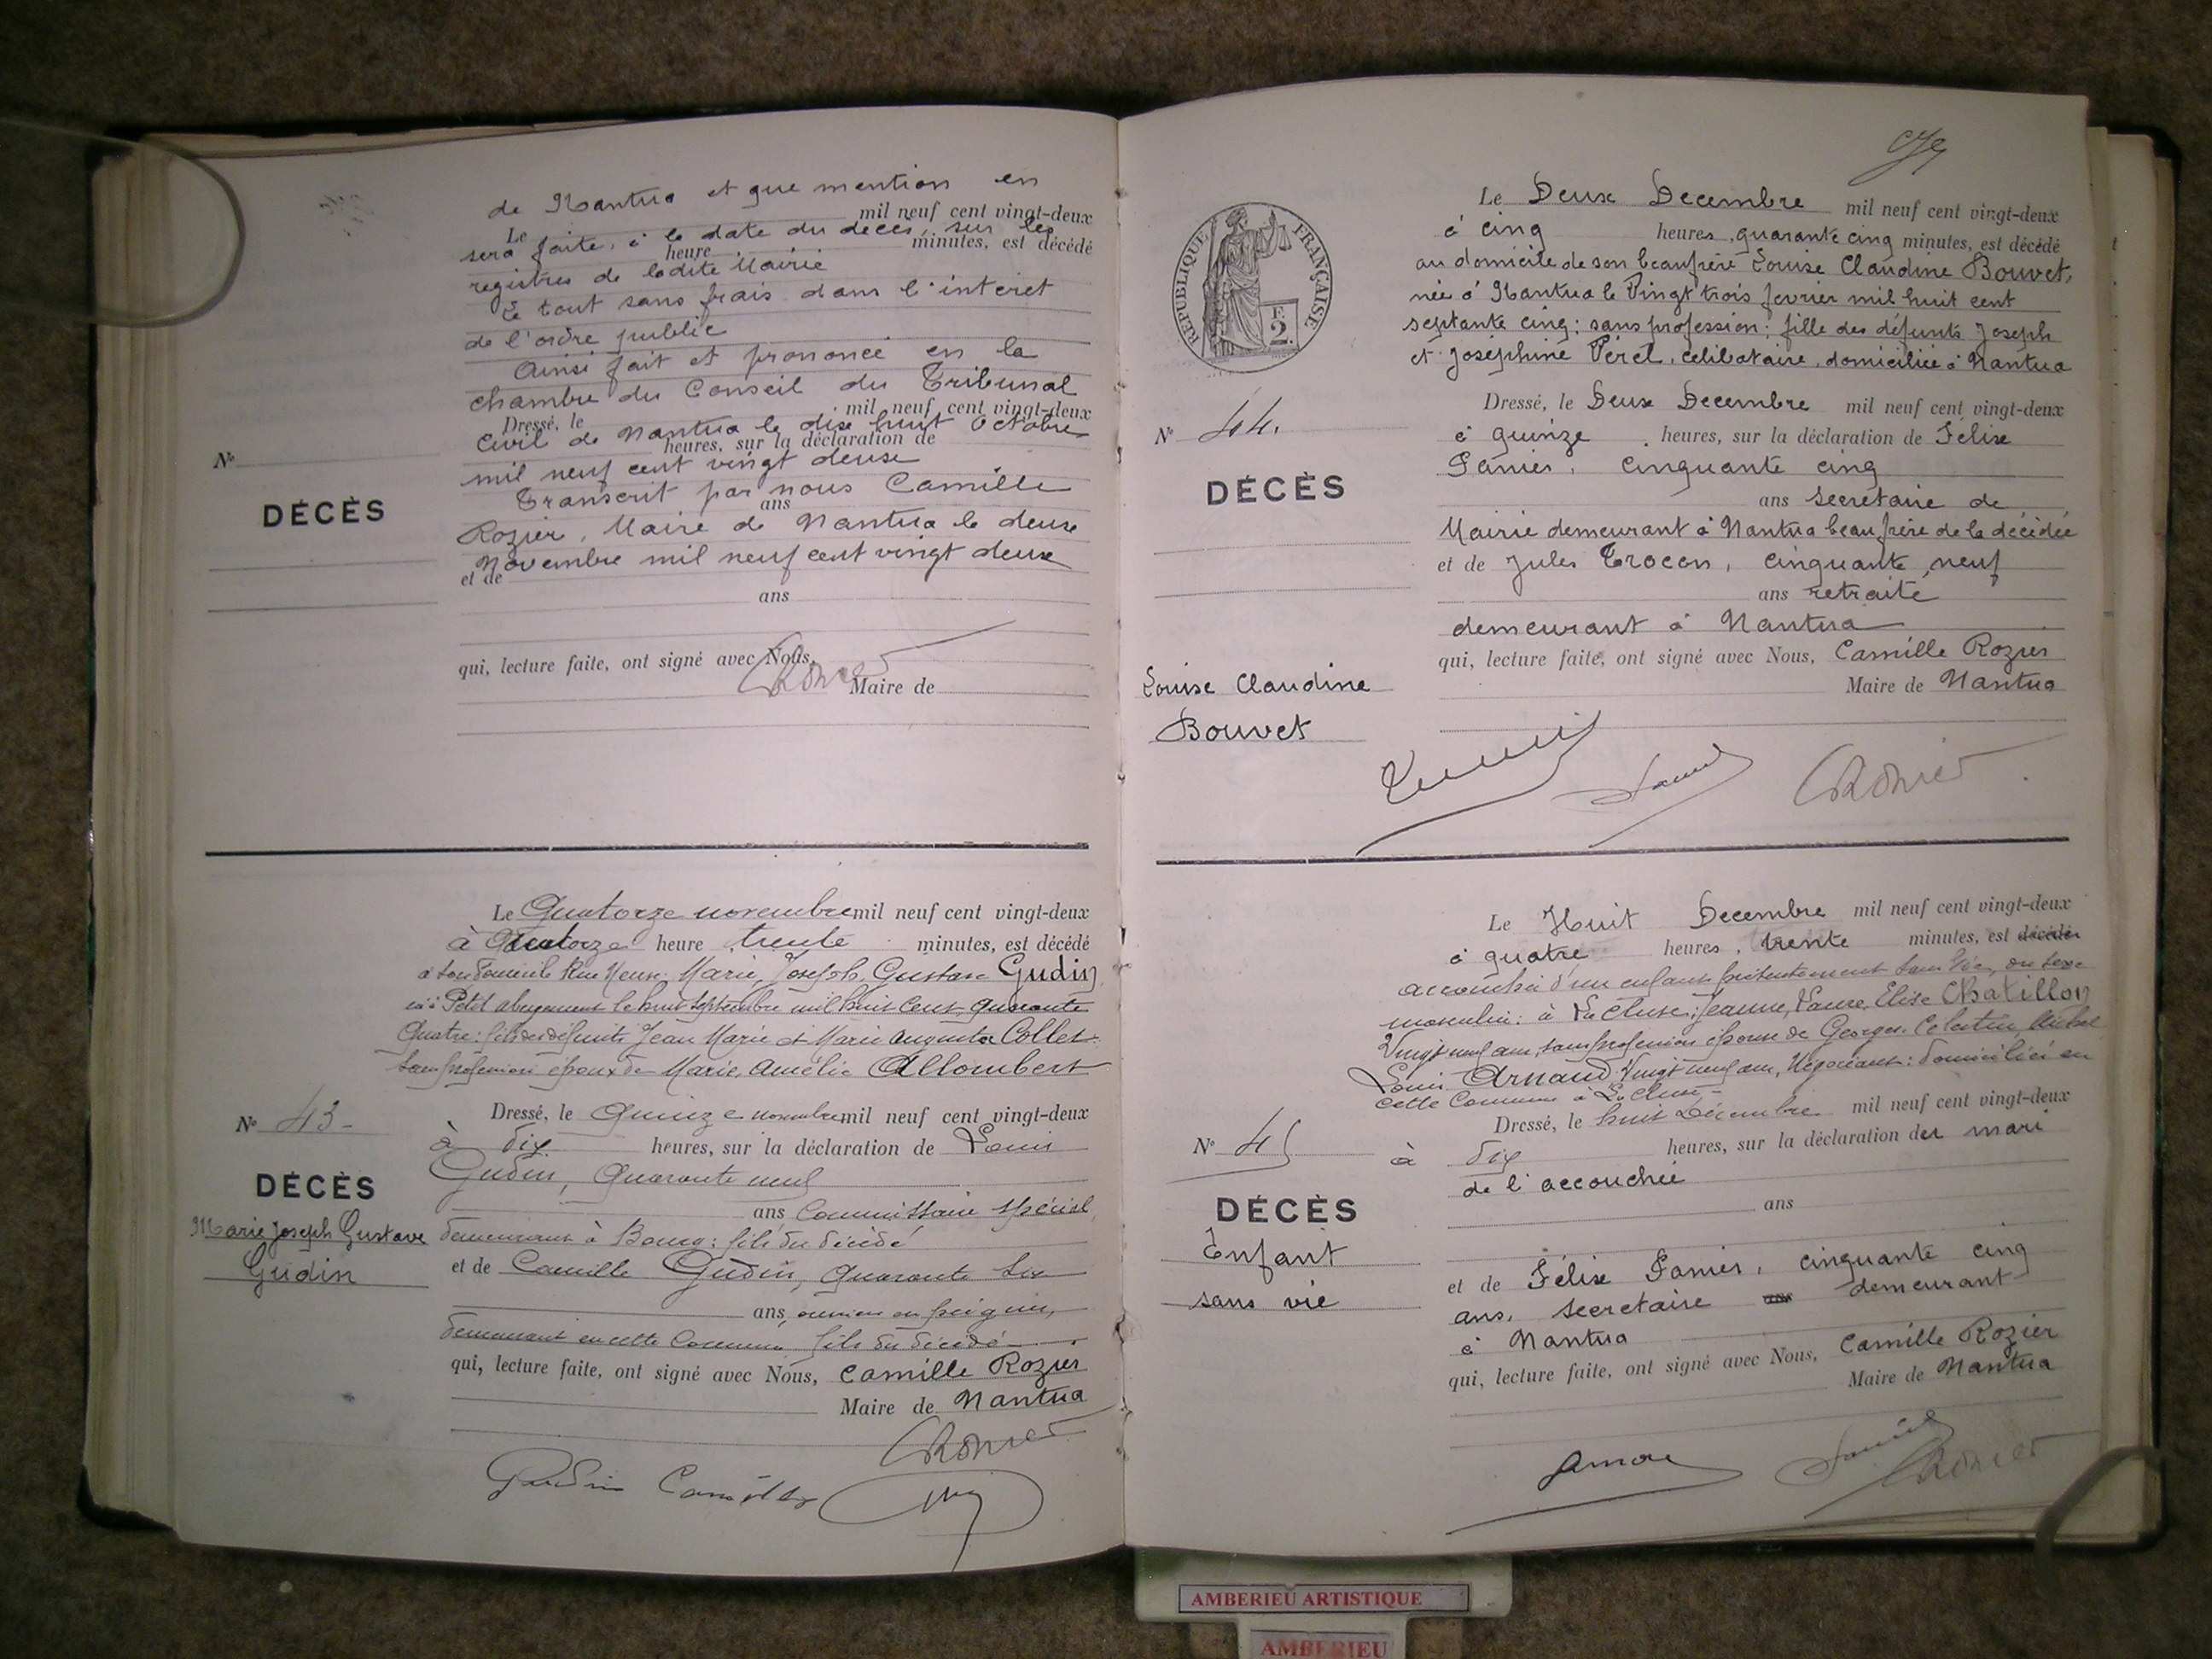 de Nantua et que mention en
Le mil neuf cent vingt-deux
sera faite, à la date du décès, sur les
heure minutes, est décédé
registres de ladite Mairie
Le tout sans frais dans l'interet
de l'ordre public
Ainsi fait et prononcé en la
chambre du Conseil du Tribunal
Dressé, le mil neuf cent vingt-deux
civil de Nantua le dix huit Octobre
heures, sur la déclaration de
mil neuf cent vingt deux
Transcrit par nous Camille
ans
Rozier, Maire de Nantua le deux
Novembre mil neuf cent vingt deux
et de
ans
qui, lecture faite, ont signé avec Nous,
Maire de
N°
DÉCÈS
Le Quatorze novembre mil neuf cent vingt-deux
à Quatorze heure trente minutes, est décédé
à son domicile Rue Neuve, Marie, Joseph, Gustave Gudin
né à Petit abergement le huit Septembre mil huit cent quarante
quatre : fils des défunts Jean Marie et Marie Augusta Collet
sans profession époux de Marie, Amélie Allombert
Dressé, le Quinze novembre mil neuf cent vingt-deux
à dix heures, sur la déclaration de Louis
Gudin, Quarante neuf
ans Commissaire spécial,
demeurant à Bourg : fils du décédé
et de Camille Gudin, Quarante six
ans, ouvrier en peignes,
demeurant en cette Commune fils du décédé
qui, lecture faite, ont signé avec Nous, Camille Rozier
Maire de Nantua
Gudin Camille
N° 43-
DÉCÈS
Marie Joseph Gustave
Gudin
REPUBLIQUE FRANÇAISE
2F.
Le Deux Decembre mil neuf cent vingt-deux
à cinq heures, quarante cinq minutes, est décédé
au domicile de son beau frère Louise Claudine Bouvet,
née à Nantua le Vingt trois fevrier mil huit cent
septante cinq : sans profession : fille des défunts Joseph
et Joséphine Péret, célibataire, domiciliée à Nantua
Dressé, le Deux Decembre mil neuf cent vingt-deux
à quinze heures, sur la déclaration de Félix
Panier, cinquante cinq
ans secretaire de
Mairie demeurant à Nantua beau frère de la décédée
et de Jules Trocon, cinquante neuf
ans retraité
demeurant à Nantua
qui, lecture faite, ont signé avec Nous, Camille Rozier
Maire de Nantua
N° 44.
DÉCÈS
Louise Claudine
Bouvet
Le Huit Decembre mil neuf cent vingt-deux
à quatre heures, trente minutes, est décédé
accouchée d'un enfant présentement sans vie, du sexe
masculin : à La Cluse : Jeanne, Laure, Elise Chatillon
Vingt neuf ans, sans profession épouse de Georges Celestin Michel
Louis Arnaud Vingt neuf ans, Négociant : domiciliés en
cette Commune à La Cluse,
Dressé, le huit Décembre mil neuf cent vingt-deux
à dix heures, sur la déclaration du mari
de l'accouchée
ans
et de Félix Panier, cinquante cinq
ans, secretaire ans demeurant
à Nantua
qui, lecture faite, ont signé avec Nous, Camille Rozier
Maire de Nantua
N° 45
DÉCÈS
Enfant
sans vie
AMBERIEU ARTISTIQUE
AMBERIEU